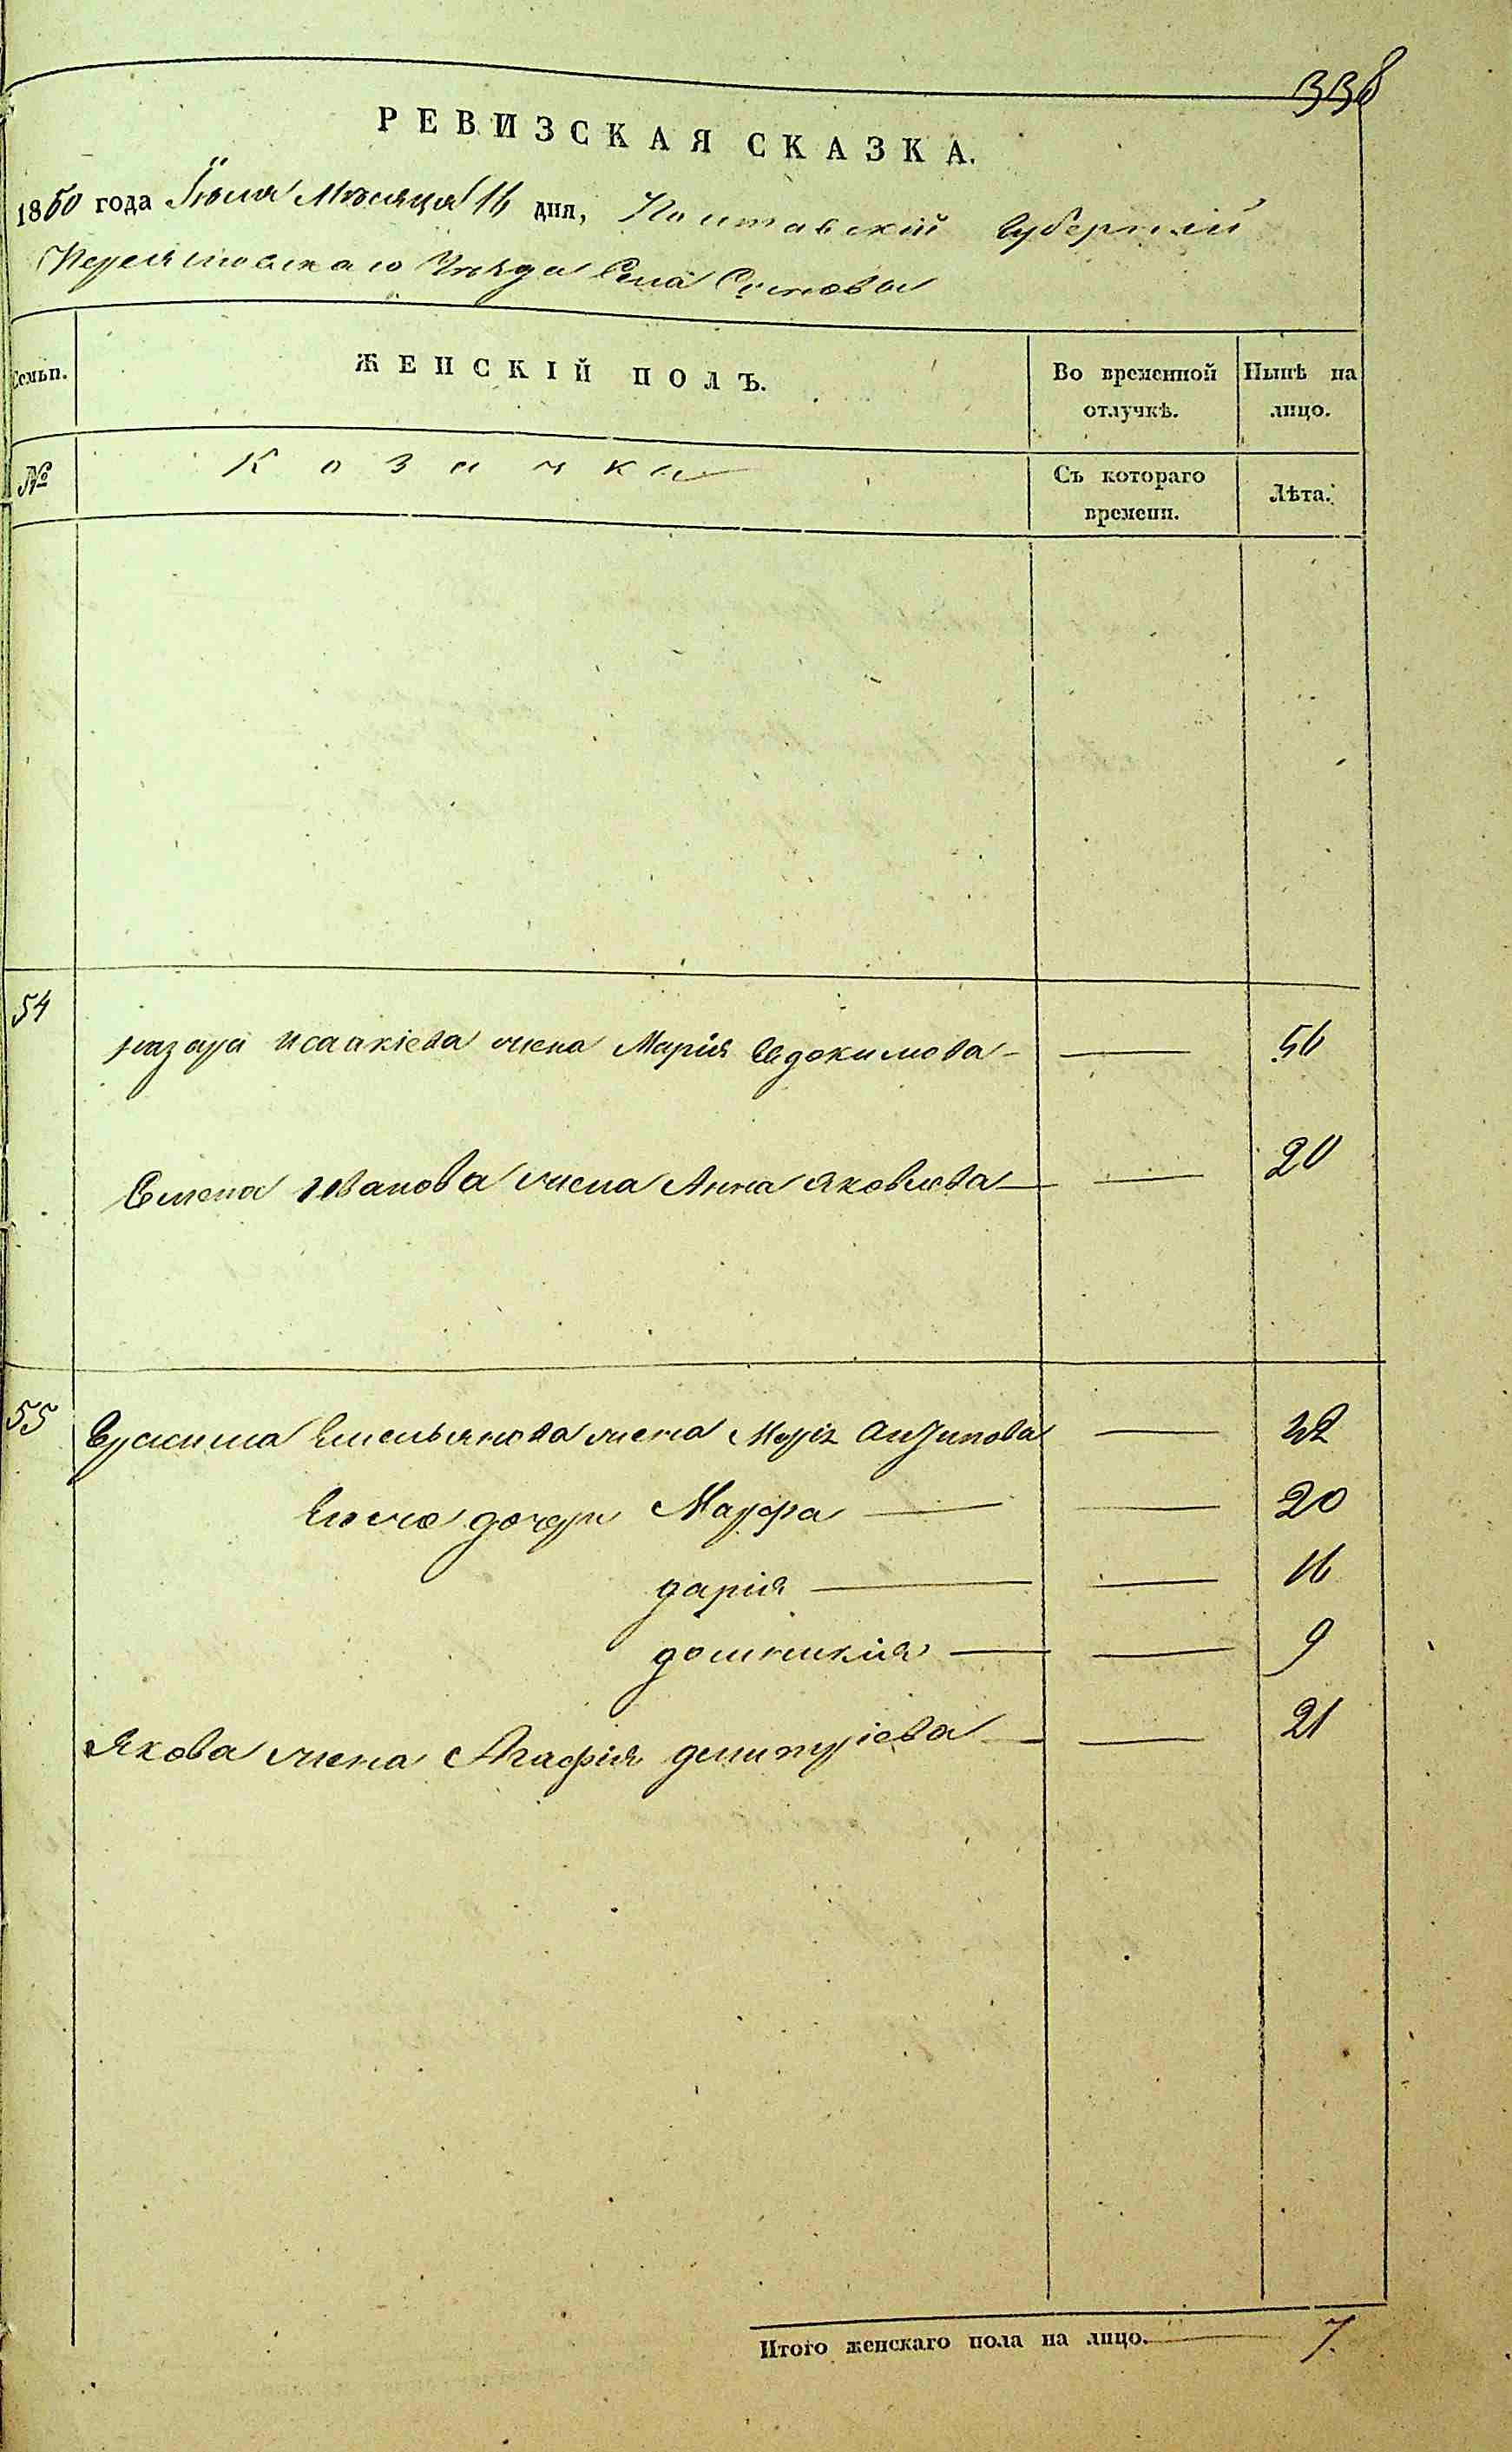 338
РЕВИЗСКАЯ СКАЗКА.
1850 года Іюля Мѣсяца 16 дня, Полтавской Губерніи
Переяславскаго Уѣзда Села
Семьи.
ЖЕНСКІЙ ПОЛЪ.
Во временной отлучкѣ.
Нынѣ на лицо.
№
Козачки
Съ котораго времени.
Лѣта.
54
Назара Исаакіева жена Марія Евдокимова — — 56
Семена Иванова жена Анна Яковлева — — 20
55
Емельянова жена Марія Антипова — 42
дочери Мауфра — — 20
дарія — — 16
домникія — — 9
Якова жена Агафія дмитріева — — 21
Итого женскаго пола на лицо. — 7.